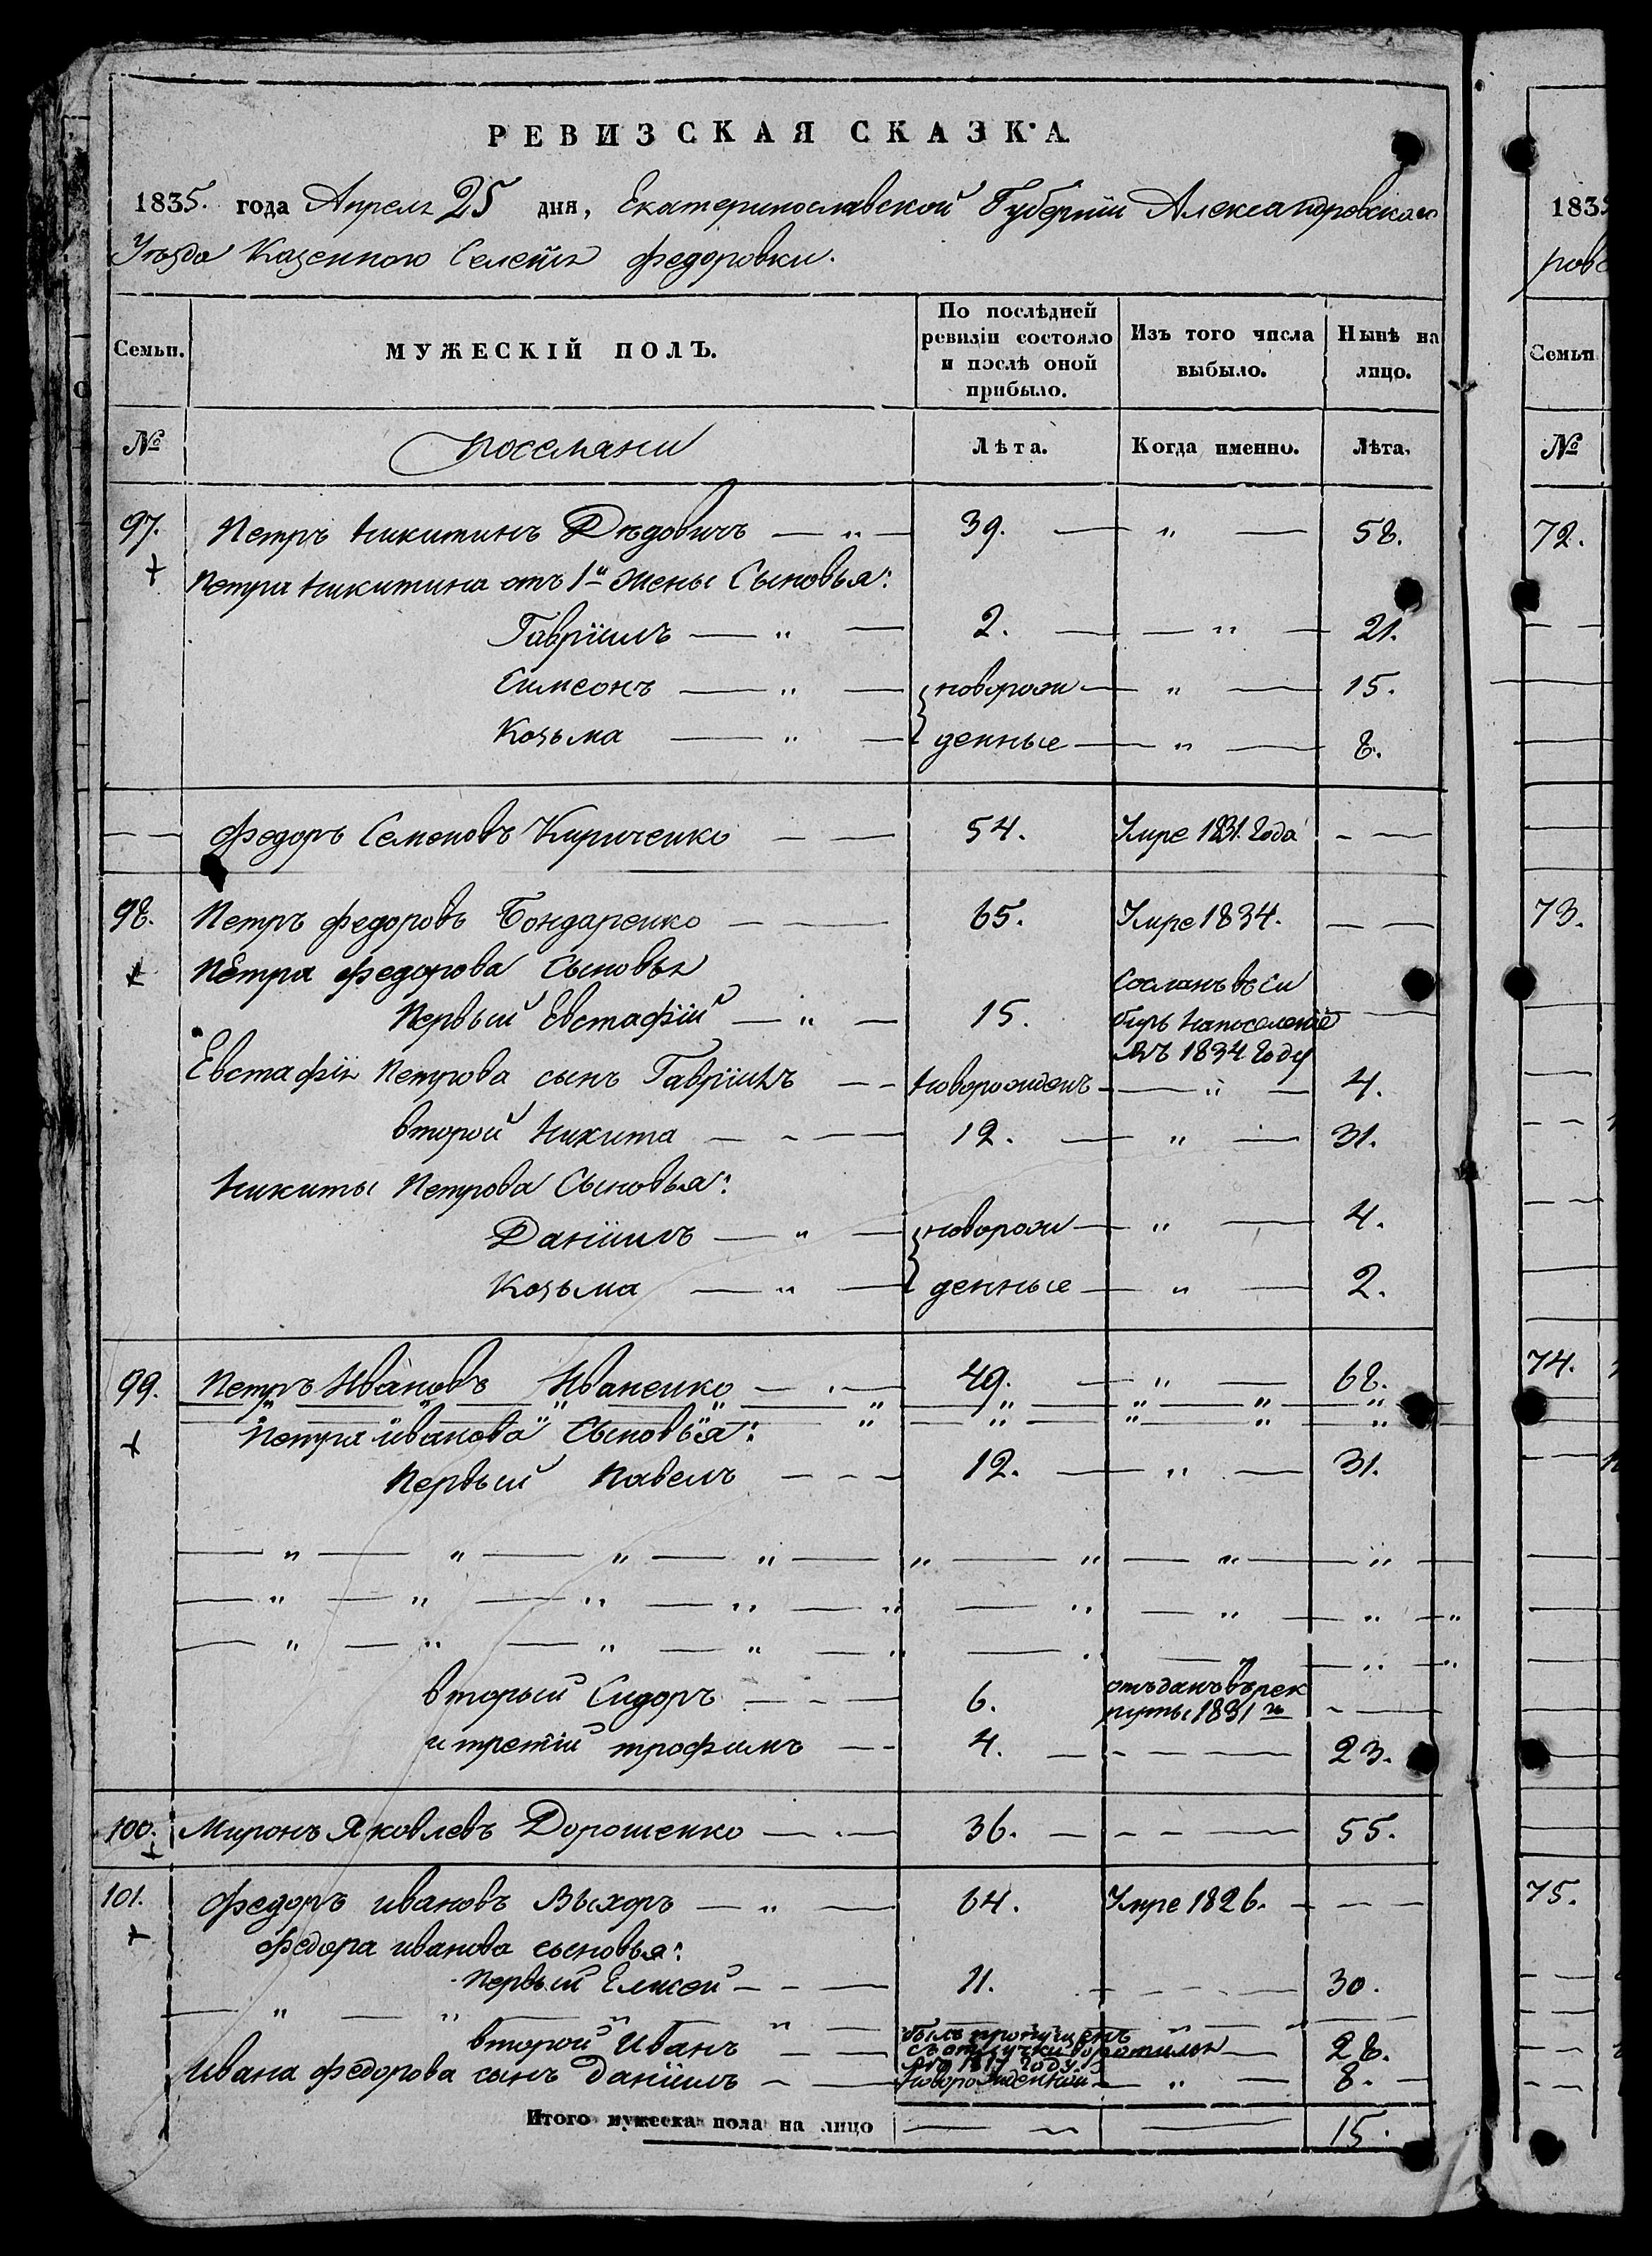 РЕВИЗСКАЯ СКАЗКА
1835. года Апреля 25 дня, Екатеринославской Губернии Александровскаго
Уѣзда Казенного Селенія Федоровки.
Семьи. МУЖЕСКІЙ ПОЛЪ. По послѣдней ревизіи состояло и послѣ оной прибыло. Изъ того числа выбыло. Нынѣ на лицо.
№ поселяни Лѣта. Когда именно. Лѣта.
97. Петръ Никитинъ Дѣдовичъ — „ — 39. — „ — 58.
Петра Никитина отъ 1й жены Сыновья:
Гавріилъ — „ — 2. — „ — 21.
Симеонъ — „ — новорож — „ — 15.
Козьма — „ — денные — „ — 8.
Федоръ Семеновъ Кириченко — — 54. Умре 1831. Года — —
98. Петръ Федоровъ Бондаренко — — 65. Умре 1834. — —
Петра Федорова Сыновья
Первый Евстафій — „ — 15. Сосланъ въ Си
биръ напоселеніе
въ 1834 Году
Евстафія Петрова сынъ Гавріилъ — — новорожденъ — „ — 4.
второй Никита — — — 12. — „ — 31.
Никиты Петрова Сыновья:
Даніилъ — „ — новорож — „ — 4.
Козьма — „ — денные — „ — 2.
99. Петръ Ивановъ Иваненко — „ — 49. — „ — 68.
Петра иванова Сыновья:
Первый Павелъ — — — 12. — „ — 31.
вторый Сидоръ — — — 6. отъданъ въ рек
руты 1831 го — —
и третій трофимъ — — 4. — — — 23.
100. Миронъ Яковлевъ Дорошенко — „ — 36. — — — 55.
101. Федоръ ивановъ Выхоръ — „ — 64. Умре 1826. — — —
Федора иванова сыновья:
Первый Елисей — — — 11. — — — 30.
второй Иванъ — — былъ пропущенъ
съ отлучки воротился — 28.
1817 Году
Ивана Федорова сынъ Даніилъ — — новорожденный — „ — 8. —
Итого мужеска пола на лицо — — — 15.
1835
ров
Семьи
№
72.
73.
74.
75.